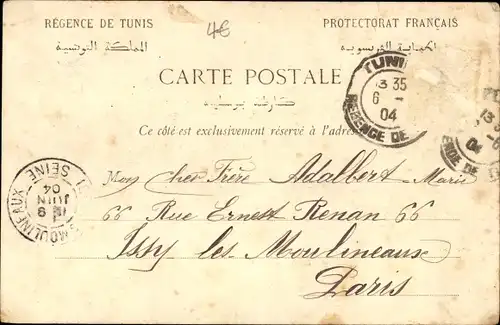 RÉGENCE DE TUNIS
4€
PROTECTORAT FRANÇAIS
المملكة التونسية
الحماية الفرنسوية
CARTE POSTALE
Ce côté est exclusivement réservé à l'adres
TUNI
3 35
6 -
04
REGENCE DE
13
- 6
04
DE T
MOULINEAUX - SEINE
9
JUIN
04
Mon Cher Frère Adalbert - Marie
66 Rue Ernest Renan 66
Issy les Moulineaux
Paris